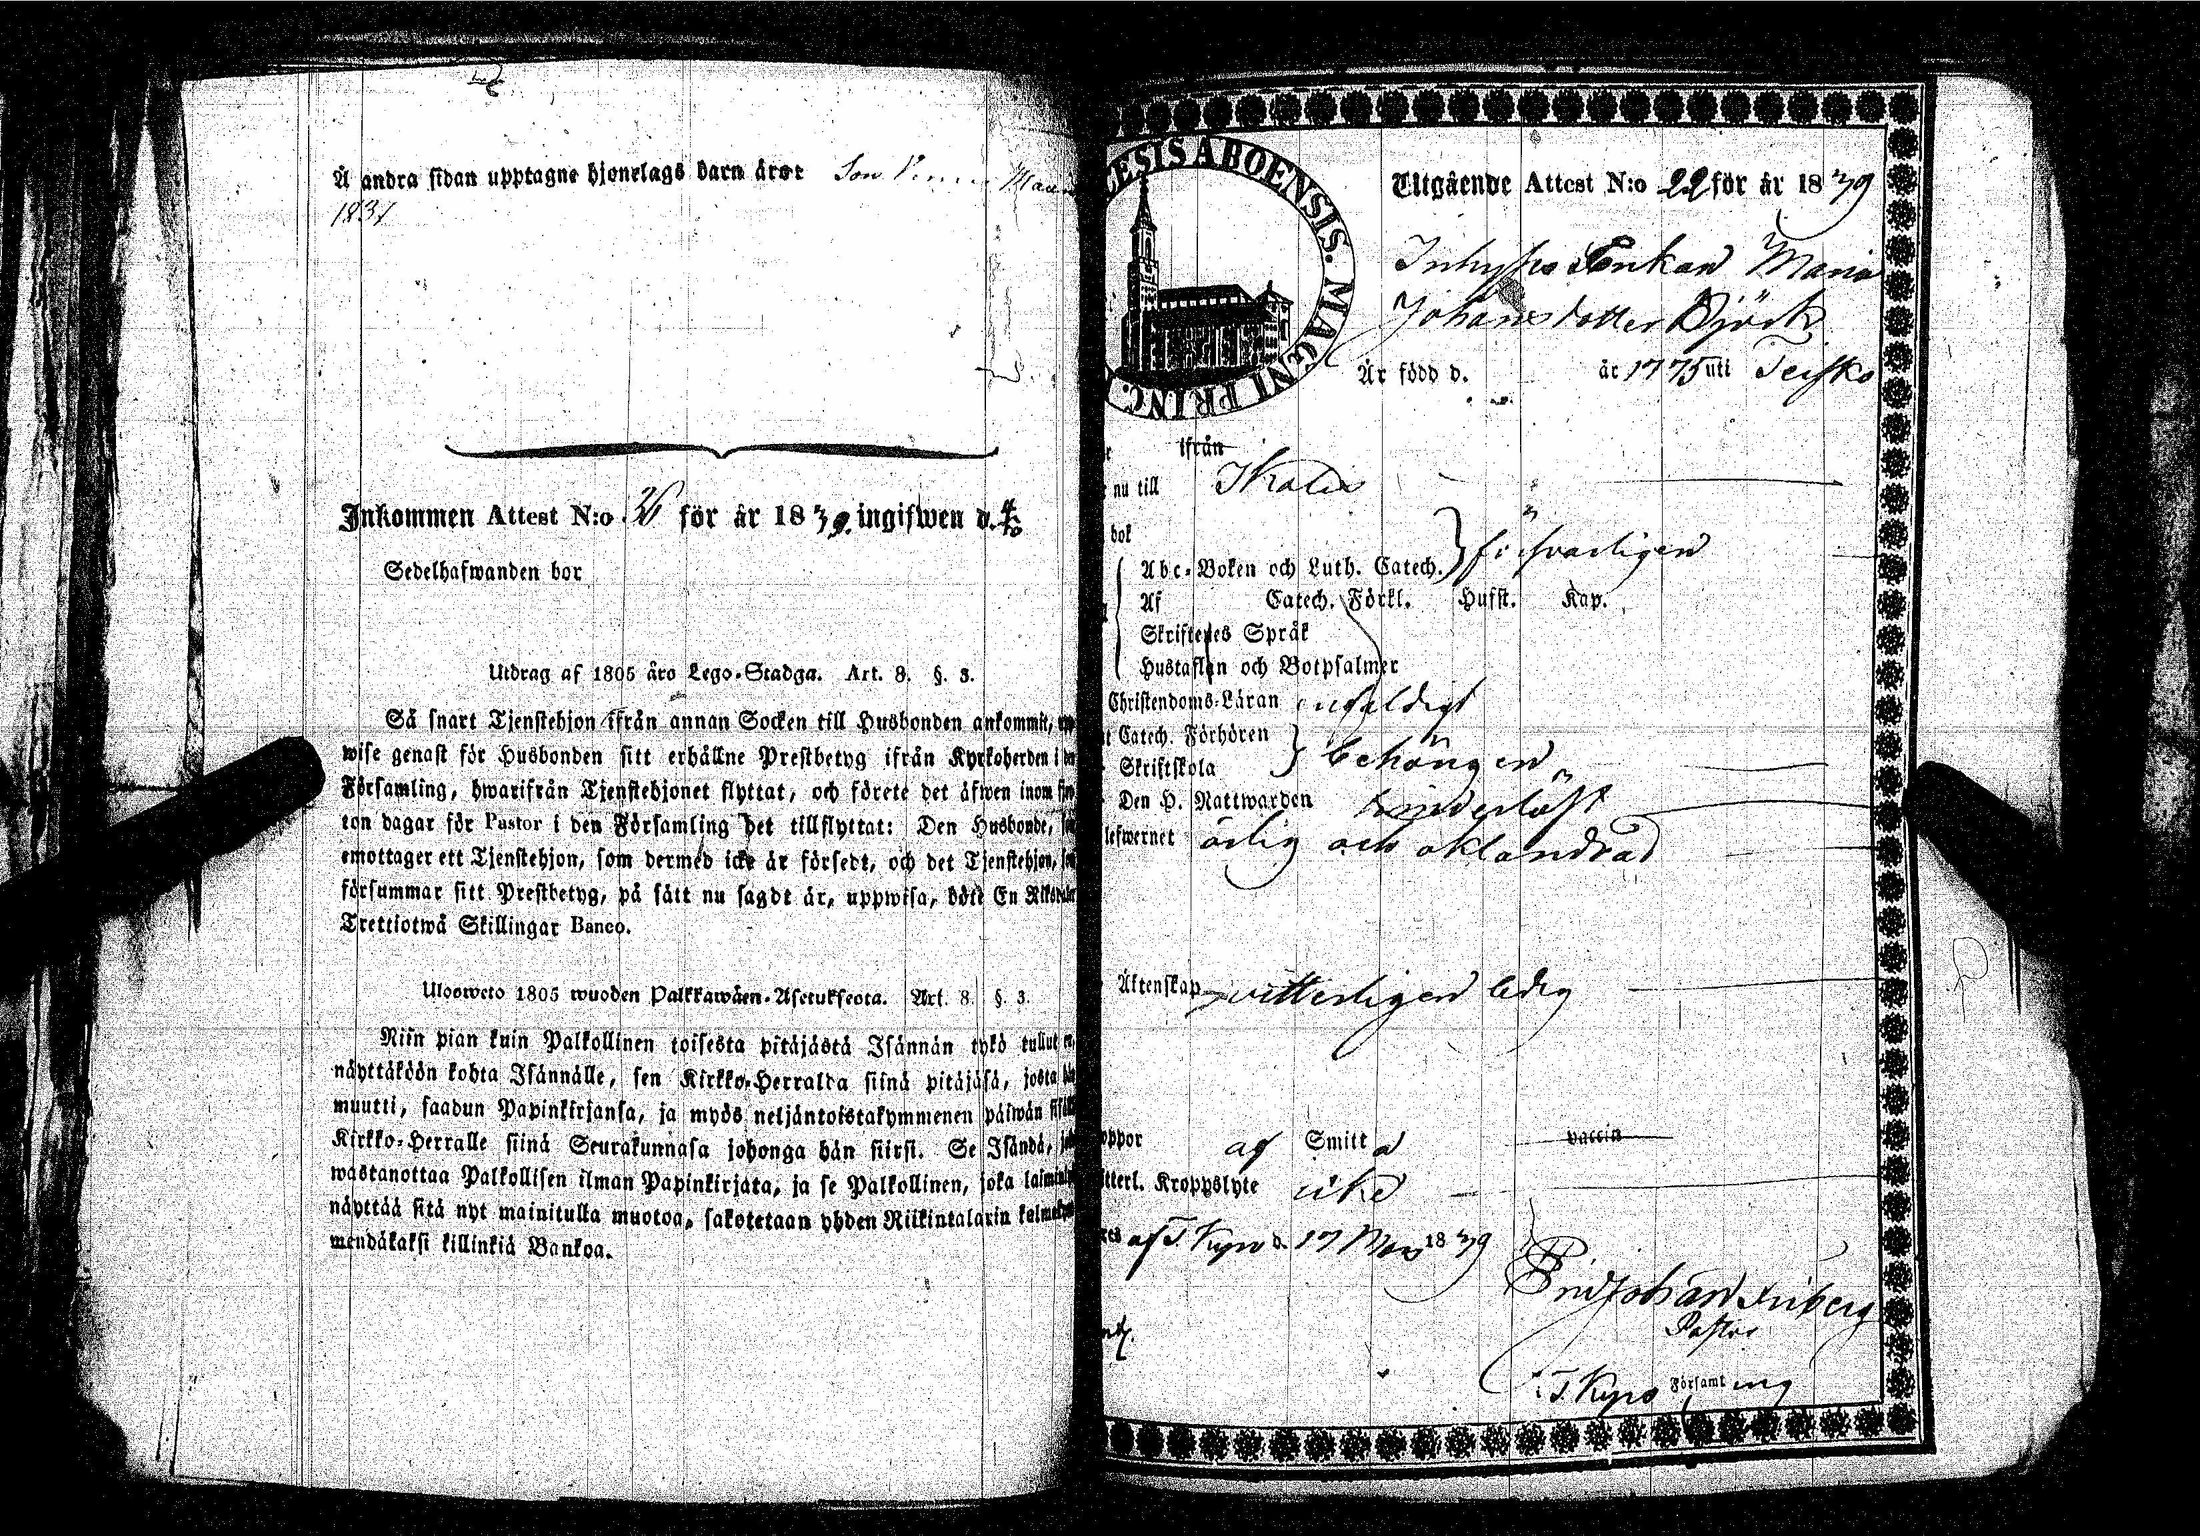 Å andra sidan upptagne hjonelags barn äro: Son
1837
Inkommen Attest N:o 26 för år 1839. ingifwen d.
Sedelhafwanden bor
Utdrag af 1805 års Lego-Stadga. Art. 8. §. 3.
Så snart Tjenstehjon ifrån annan Socken till Husbonden ankommit,
wise genast för Husbonden sitt erhållne Prestbetyg ifrån Kyrkoherden i
Församling, hwarifrån Tjenstehjonet flyttat, och förete det äfwen inom
ton dagar för Pastor i den Församling det tillflyttat: Den Husbonde,
emottager ett Tjenstehjon, som dermed icke är försedt, och det Tjenstehjon,
försummar sitt Prestbetyg, på sätt nu sagdt är, uppwisa, böte En
Trettiotwå Skillingar Banco.
Ulosweto 1805 wuoden Palkkawäen-Asetuksesta. Art. 8 §. 3.
Niin pian kuin Palkollinen toisesta pitäjästä Isännän tykö tullut
näyttäköön kohta Isännälle, sen Kirkko-Herralta siinä pitäjäsä, josta
muutti, saadun Papinkirjansa, ja myös neljäntoistakymmenen päiwän
Kirkko-Herralle siinä Seurakunnasa johonga hän siirsi. Se Isändä,
wastanottaa Palkollisen ilman Papinkirjata, ja se Palkollinen, joka
näyttää sitä nyt mainitulla muotoa, sakotetaan yhden Riikintalarin
mendäkaksi killinkiä Bankoa.
LESIS ABOENSIS. MAGNI PRINC.
Utgående Attest N:o 22 för år 1839
Inhyses Enkan Maria
Johansdotter Björk
Är född d. år 1775 uti Teisko
ifrån
nu till Ikalis
bok
Abc-Boken och Luth. Catech. försvarligen
Af Catech. Förkl. Husst. Kap.
Skriftenes Språk
Hustaflan och Botpsalmer
Christendoms-Läran enfaldigt
Catech. Förhören
Skriftskola behörigen
Den H. Nattwarden hinderlöst
lefwernet ärlig och oklandrad
Äktenskap witterligen ledig
oppor af Smitta vaccin
itterl. Kroppslyte icke
af T. Kyro d. 17 Mars 1839
Johan Friberg
Pastor
i T. Kyro Församling